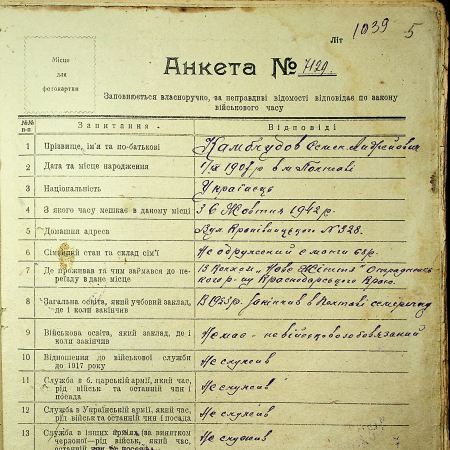 Літ
1039 5
Місце
для
фотокартки
Анкета № 7129.
Заповнюється власноручно, за неправдиві відомості відповідає по закону
військового часу
№№ п-п Запитання Відповіді
1 Прізвище, ім'я та по-батькові Семен Андрійович
2 Дата та місце народження 1/ІХ 1907 р в м Полтаві
3 Національність Українець
4 З якого часу мешкає в даному місці З 6 Жовтня 1942 р.
5 Домашня адреса Вул Кропивницького № 328.
6 Сімейний стан та склад сім'ї Не одружений
7 Де проживав та чим займався до пе-
реїзду в дане місце
В колхозі „Нове Життя"
кого р-ну Краснодарського Краю.
8 Загальна освіта, який учбовий заклад,
де і коли закінчив
закінчив в Полтаві семирічку
9 Військова освіта, який заклад, де і
коли закінчив
Немає - не військовозобов'язаний
10 Відношення до військової служби
до 1917 року
Не служив
11 Служба в б. царській армії, який час,
рід військ та останній чин і
посада
Не служив
12 Служба в Українській армії, який час,
рід військ та останній чин і посада
Не служив
13 Служба в інших арміях (за винятком
червоної—рід військ, який час,
останній чин та посада
Не служив